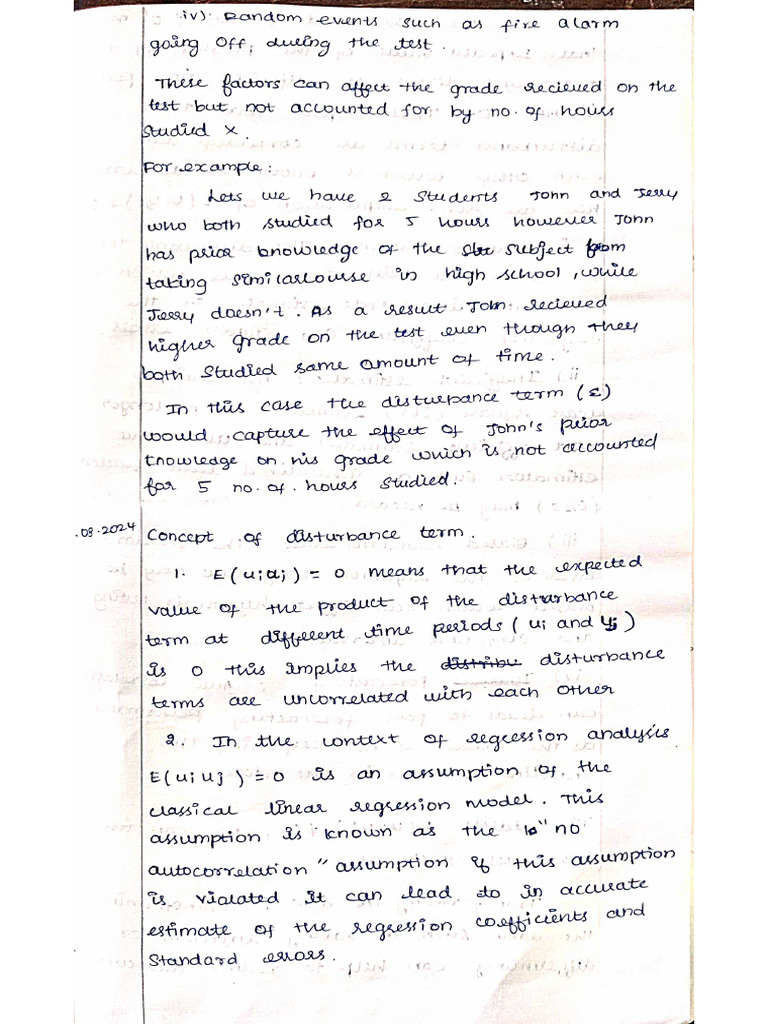 iv). Random events such as fire alarm
going off, during the test.
These factors can affect the grade recieved on the
test but not accounted for by no. of hours
studied x.
For example:
Lets we have 2 students John and Jerry
who both studied for 5 hours however John
has prior knowledge of the subject from
taking similar course in high school, while
Jerry doesn't. As a result John recieved
higher grade on the test even though they
both studied same amount of time.
In this case the disturbance term (ε)
would capture the effect of John's prior
knowledge on his grade which is not accounted
for 5 no. of. hours studied.
.03.2024 Concept of disturbance term.
1. E(uiuj) = 0 means that the expected
value of the product of the disturbance
term at different time periods (ui and uj)
is 0 this implies the distribu disturbance
terms are uncorrelated with each other
2. In the context of regression analysis
E(uiuj) = 0 is an assumption of the
classical linear regression model. This
assumption is known as the "no
autocorrelation" assumption if this assumption
is violated it can lead to in accurate
estimate of the regression coefficients and
standard errors.